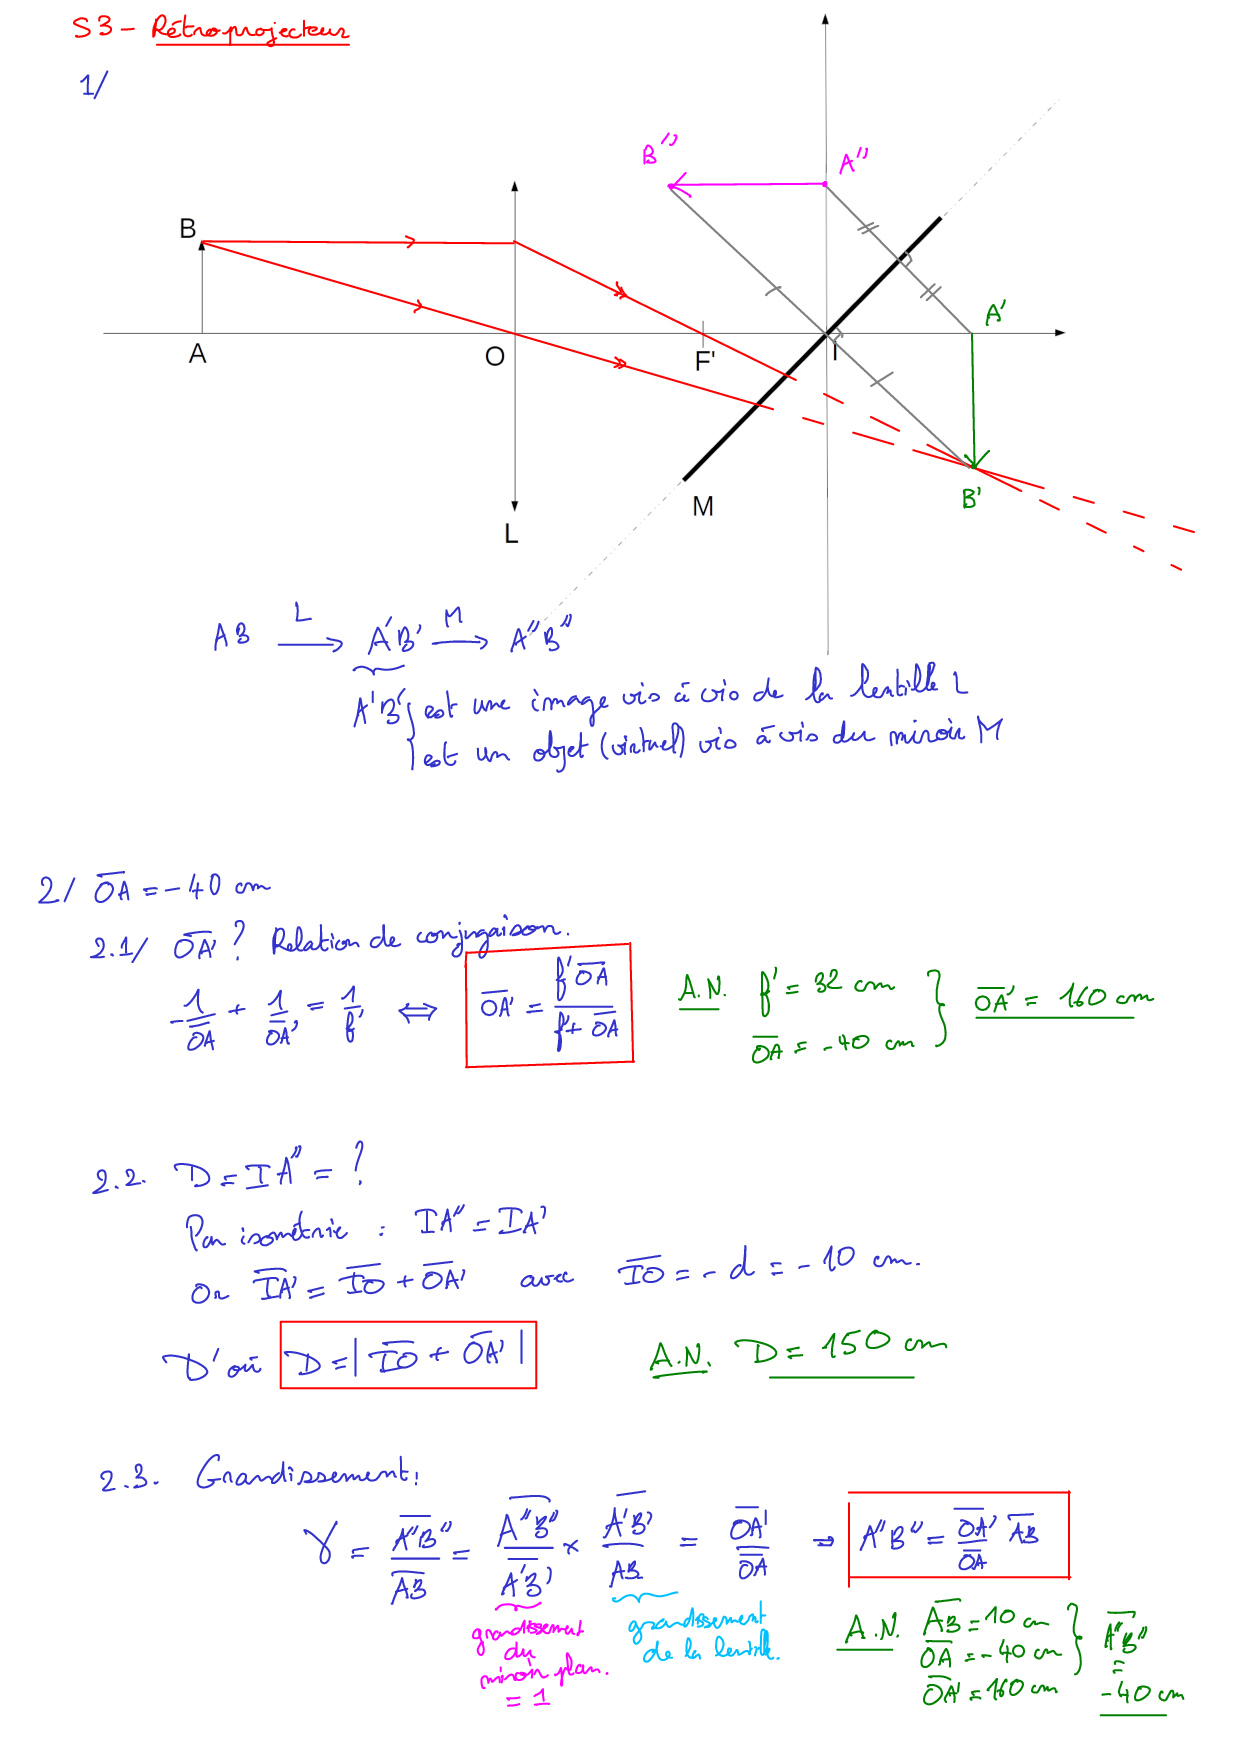 S3 - Rétroprojecteur
1/
B'' A''
B
A'
A O F' I
B'
M
L
AB —L→ A'B' —M→ A''B''
A'B' { est une image vis à vis de la lentille L
est un objet (virtuel) vis à vis du miroir M
2/ OA = -40 cm
2.1/ OA' ? Relation de conjugaison.
-1/OA + 1/OA' = 1/f' ⟺ OA' = f' OA / f' + OA A.N. f' = 32 cm } OA' = 160 cm
OA = -40 cm
2.2. D = IA'' = ?
Par isométrie : IA'' = IA'
Or IA' = IO + OA' avec IO = - d = - 10 cm.
D'où D = | IO + OA' | A.N. D = 150 cm
2.3. Grandissement :
γ = A''B''/AB = A''B''/A'B' × A'B'/AB = OA'/OA ⇒ A''B'' = OA'/OA AB
grandissement du miroir plan. = 1
grandissement de la lentille.
A.N. AB = 10 cm } A''B'' = -40 cm
OA = -40 cm
OA' = 160 cm